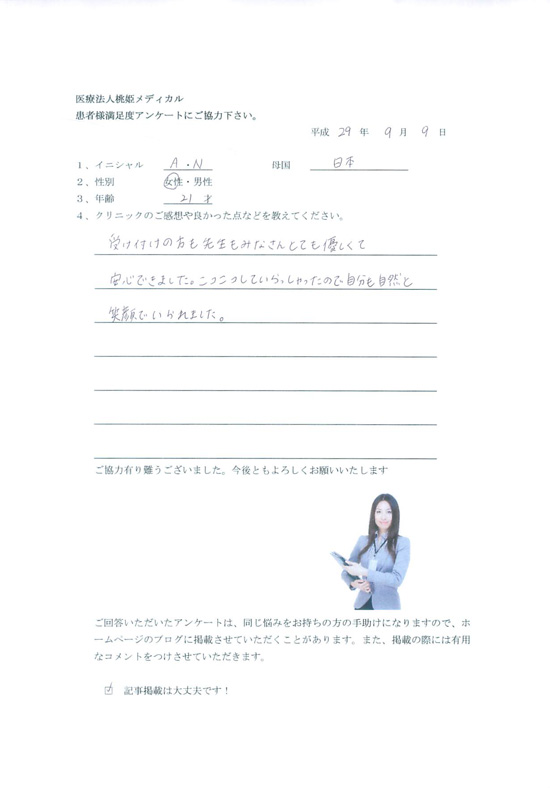 医療法人桃姫メディカル
患者様満足度アンケートにご協力下さい。
平成 29 年 9 月 9 日
1、イニシャル A・N 母国 日本
2、性別 女性・男性
3、年齢 21才
4、クリニックのご感想や良かった点などを教えてください。
受け付けの方も先生もみなさんとても優しくて
安心できました。ニコニコしていらっしゃったので自分も自然と
笑顔でいられました。
ご協力有り難うございました。今後ともよろしくお願いいたします
ご回答いただいたアンケートは、同じ悩みをお持ちの方の手助けになりますので、ホ
ームページのブログに掲載させていただくことがあります。また、掲載の際には有用
なコメントをつけさせていただきます。
☑ 記事掲載は大丈夫です！